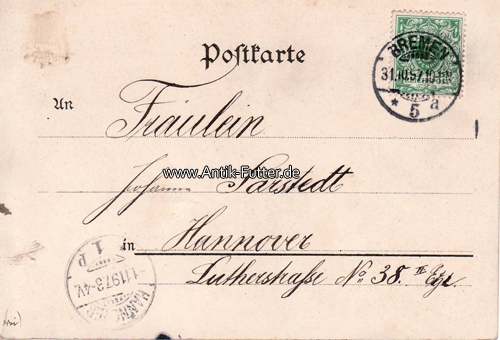 Postkarte
BREMEN
31.10.97.10-11N.
* 5 a
An
Fräulein
www.Antik-Futter.de
Johanne Sarstedt
in Hannover
Lutherstraße No 38. II Etg.
HANNOVER
1 P
1/11 97 3-4V.